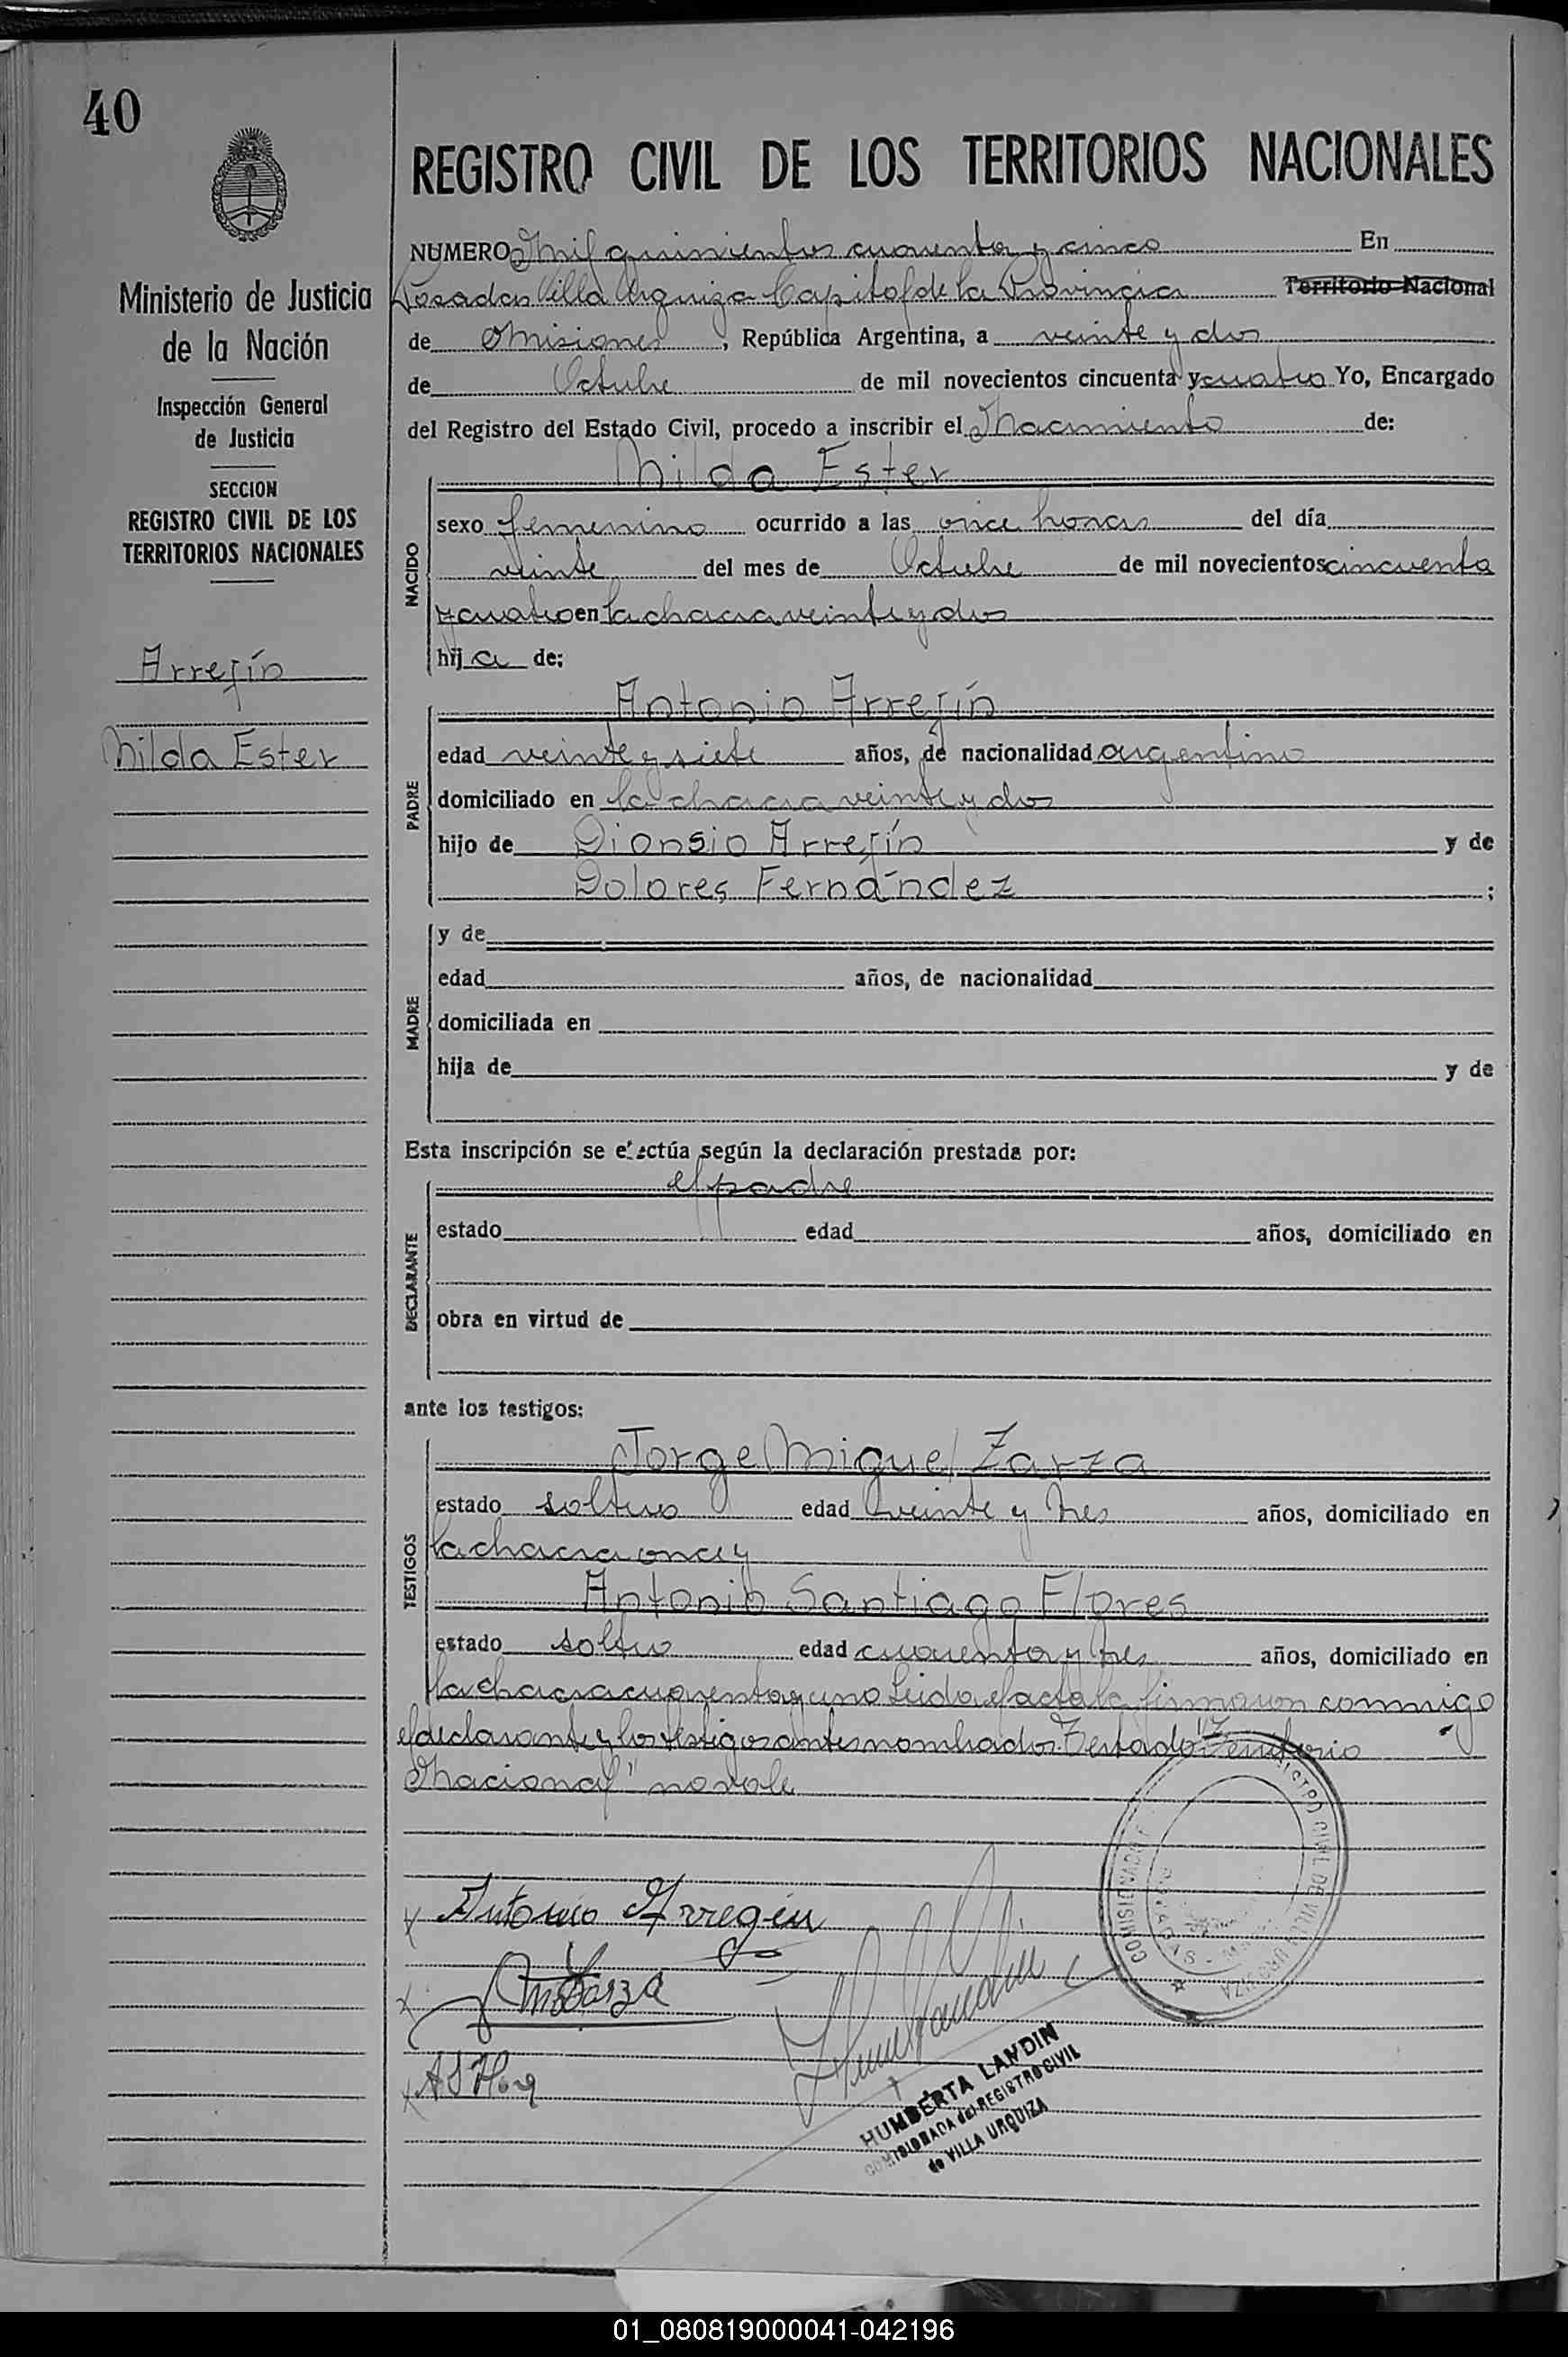 40
REGISTRO CIVIL DE LOS TERRITORIOS NACIONALES
Ministerio de Justicia
de la Nación
Inspección General
de Justicia
SECCION
REGISTRO CIVIL DE LOS
TERRITORIOS NACIONALES
Arregín
Nilda Ester
NUMERO Mil quinientos cuarenta y cinco En
Posadas Villa Urquiza Capital de la Provincia Territorio Nacional
de Misiones, República Argentina, a veinte y dos
de Octubre de mil novecientos cincuenta y cuatro Yo, Encargado
del Registro del Estado Civil, procedo a inscribir el Nacimiento de:
NACIDO
Nilda Ester
sexo femenino ocurrido a las once horas del día
veinte del mes de Octubre de mil novecientos cincuenta
y cuatro en la chacra veinte y dos
hija de:
PADRE
Antonio Arregín
edad veinte y siete años, de nacionalidad argentino
domiciliado en la chacra veinte y dos
hijo de Dionsio Arregín y de
Dolores Fernández ;
MADRE
y de
edad años, de nacionalidad
domiciliada en
hija de y de
Esta inscripción se efectúa según la declaración prestada por:
DECLARANTE
el padre
estado edad años, domiciliado en
obra en virtud de
ante los testigos:
TESTIGOS
Jorge Miguel Zarza
estado soltero edad veinte y tres años, domiciliado en
la chacra once y
Antonio Santiago Flores
estado soltero edad cuarenta y tres años, domiciliado en
la chacra cuarenta y uno Leida el acta la firmaron conmigo
el declarante y los testigos antes nombrados. Testado "Territorio
Nacional" no vale
COMISIONADO REGISTRO CIVIL DE VILLA URQUIZA
x Antonio Arregín
x JMZarza
x A S Flores
HUMBERTA LANDIN
COMISIONADA del REGISTRO CIVIL
de VILLA URQUIZA
01_080819000041-042196